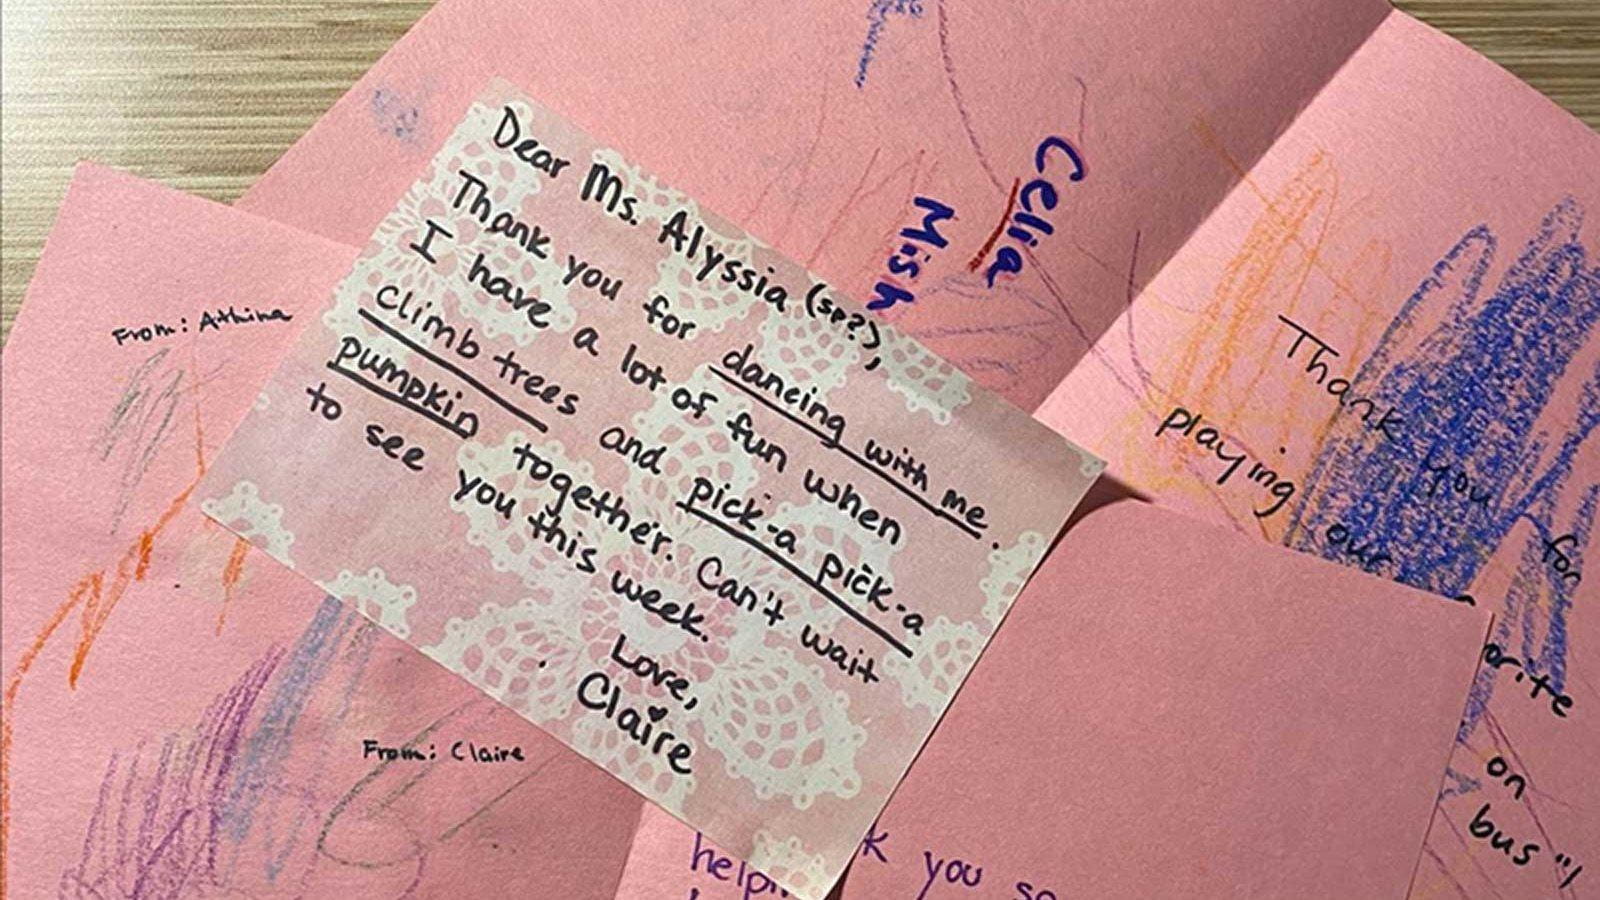 Dear Ms. Alyssia (sp?),
Thank you for dancing with me.
I have a lot of fun when
climb trees and pick-a pick-a
pumpkin together. Can't wait
to see you this week.
Love,
Claire
From: Athina
From: Claire
Celia
Mish
Thank you for
playing our
on
bus"!
you so